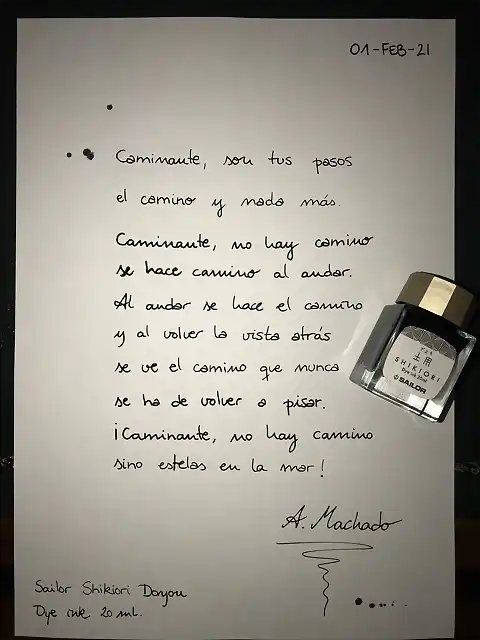 01-FEB-21
Caminante, son tus pasos
el camino y nada más.
Caminante, no hay camino
se hace camino al andar.
Al andar se hace el camino
y al volver la vista atrás
se ve el camino que nunca
se ha de volver a pisar.
¡Caminante, no hay camino
sino estelas en la mar!
A. Machado
土用
SHIKIORI
Dye ink 20ml
SAILOR
Sailor Shikiori Doyou
Dye ink 20 ml.